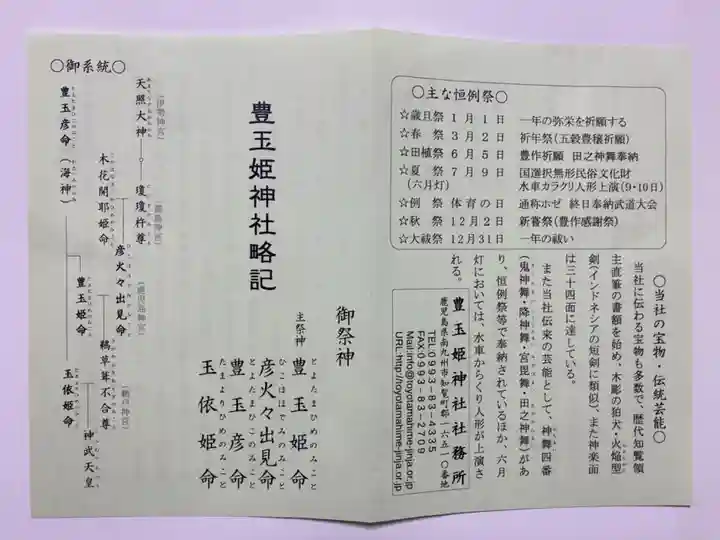 ○主な恒例祭○
☆歳旦祭 1月1日 一年の弥栄を祈願する
☆春祭 3月2日 祈年祭(五穀豊穣祈願)
☆田植祭 6月5日 豊作祈願 田之神舞奉納
☆夏祭 7月9日 国選択無形民俗文化財
(六月灯) 水車カラクリ人形上演(9・10日)
☆例祭 体育の日 通称ホゼ 終日奉納武道大会
☆秋祭 12月2日 新嘗祭(豊作感謝祭)
☆大祓祭 12月31日 一年の祓い
○当社の宝物・伝統芸能○
当社に伝わる宝物も多数で、歴代知覧領
主直筆の書額を始め、木彫の狛犬・火焔型
剣(インドネシアの短剣に類似)、また神楽面
は三十四面に達している。
また当社伝来の芸能として、神舞四番
(鬼神舞・降神舞・宮毘舞・田之神舞)があ
り、恒例祭等で奉納されているほか、六月
灯においては、水車からくり人形が上演さ
れる。
豊玉姫神社社務所
鹿児島県南九州市知覧町郡一六五一〇番地
TEL:0993-83-4335
FAX:0993-83-2709
Mail:info@toyotamahime-jinja.or.jp
URL:http://toyotamahime-jinja.or.jp
豊玉姫神社略記
御祭神
主祭神 豊玉姫命
とよたまひめのみこと
彦火々出見命
ひこほほでみのみこと
豊玉彦命
とよたまひこのみこと
玉依姫命
たまよりひめのみこと
○御系統○
(伊勢神宮)
天照大神
瓊瓊杵尊
(霧島神宮)
木花開耶姫命
彦火々出見命
(鹿児島神宮)
豊玉彦命(海神)
豊玉姫命
鵜草葺不合尊
(鵜戸神宮)
玉依姫命
神武天皇